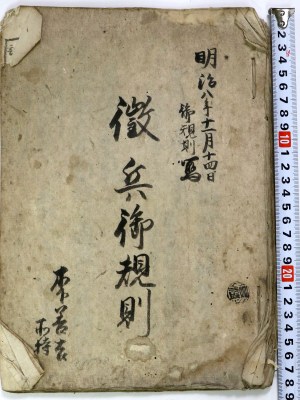 明治八年十二月十四日
御規則写
徴兵御規則
所持
1 2 3 4 5 6 7 8 9 10 1 2 3 4 5 6 7 8 9 20 1 2 3 4 5 6 7 8